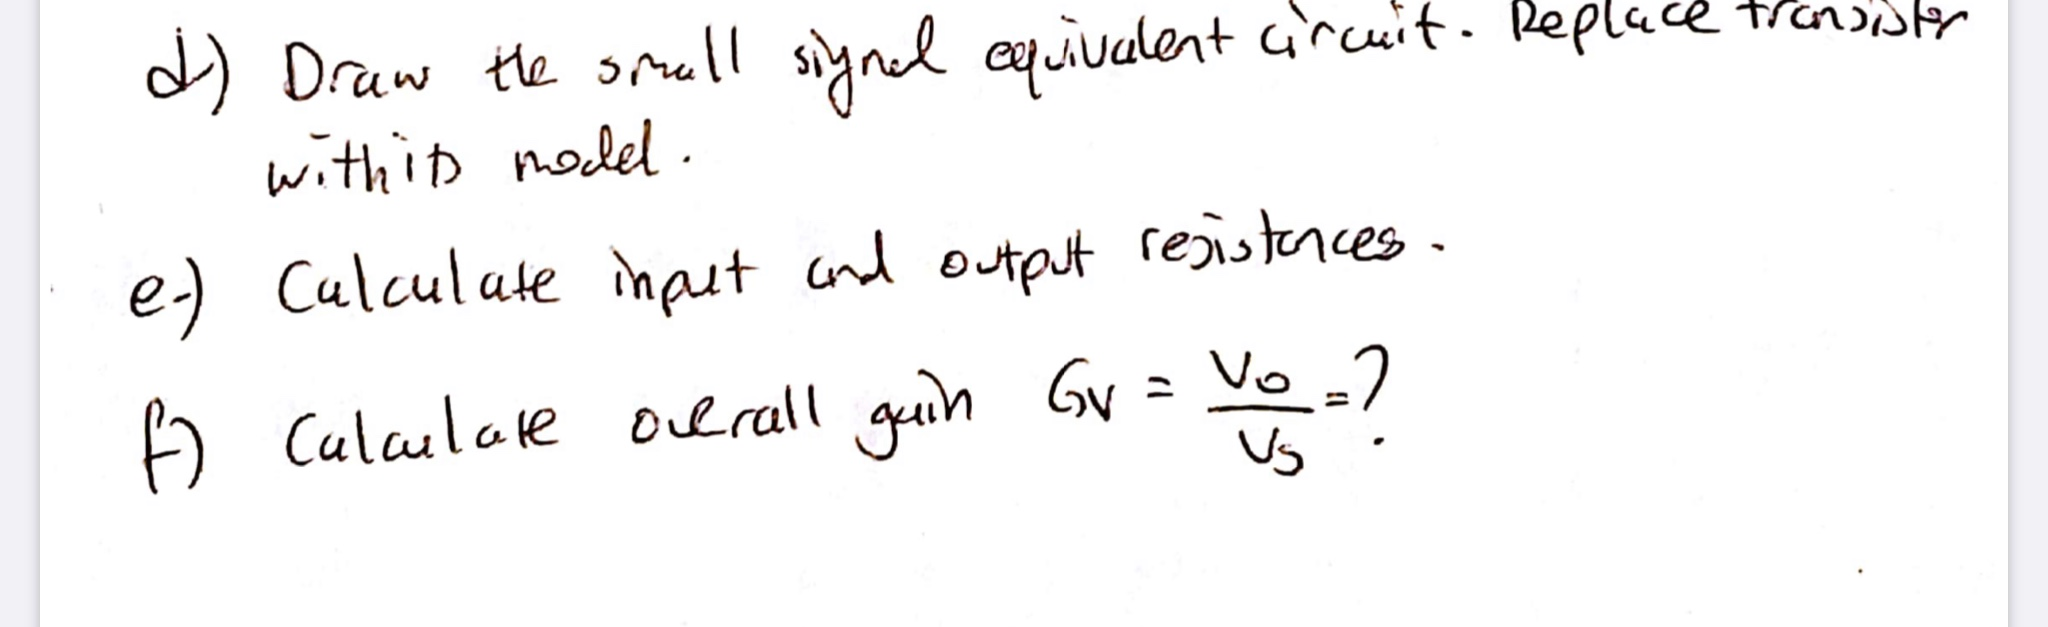 d) Draw the small signal equivalent circuit. Replace transistor
with its model.
e-) Calculate input and output resistances.
f) Calculate overall gain Gv = Vo/Vs = ?